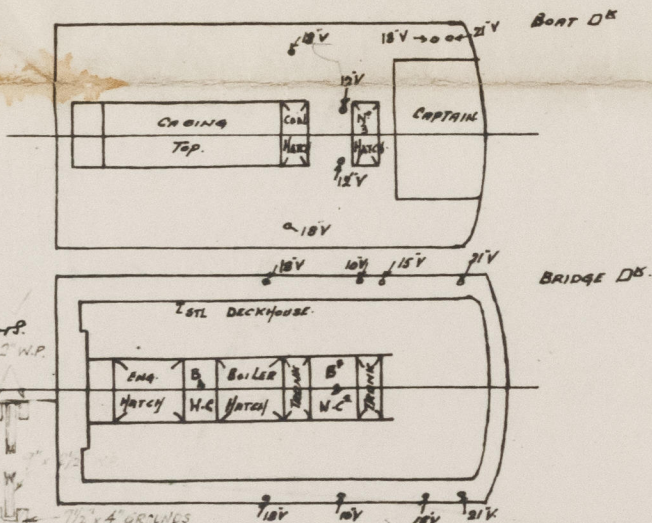 BOAT DK
18"V
18"V
21"V
12"V
CASING
TOP.
COAL
HATCH
No
3
HATCH
CAPTAIN
12"V
18"V
BRIDGE DK.
18"V
10"V
15"V
21"V
STL DECKHOUSE.
2" W.P.
ENG.
HATCH
W.C
BOILER
HATCH
TRUNK
W.C
TRUNK
7½" x 4" GROUNDS
18"V
10"V
21"V